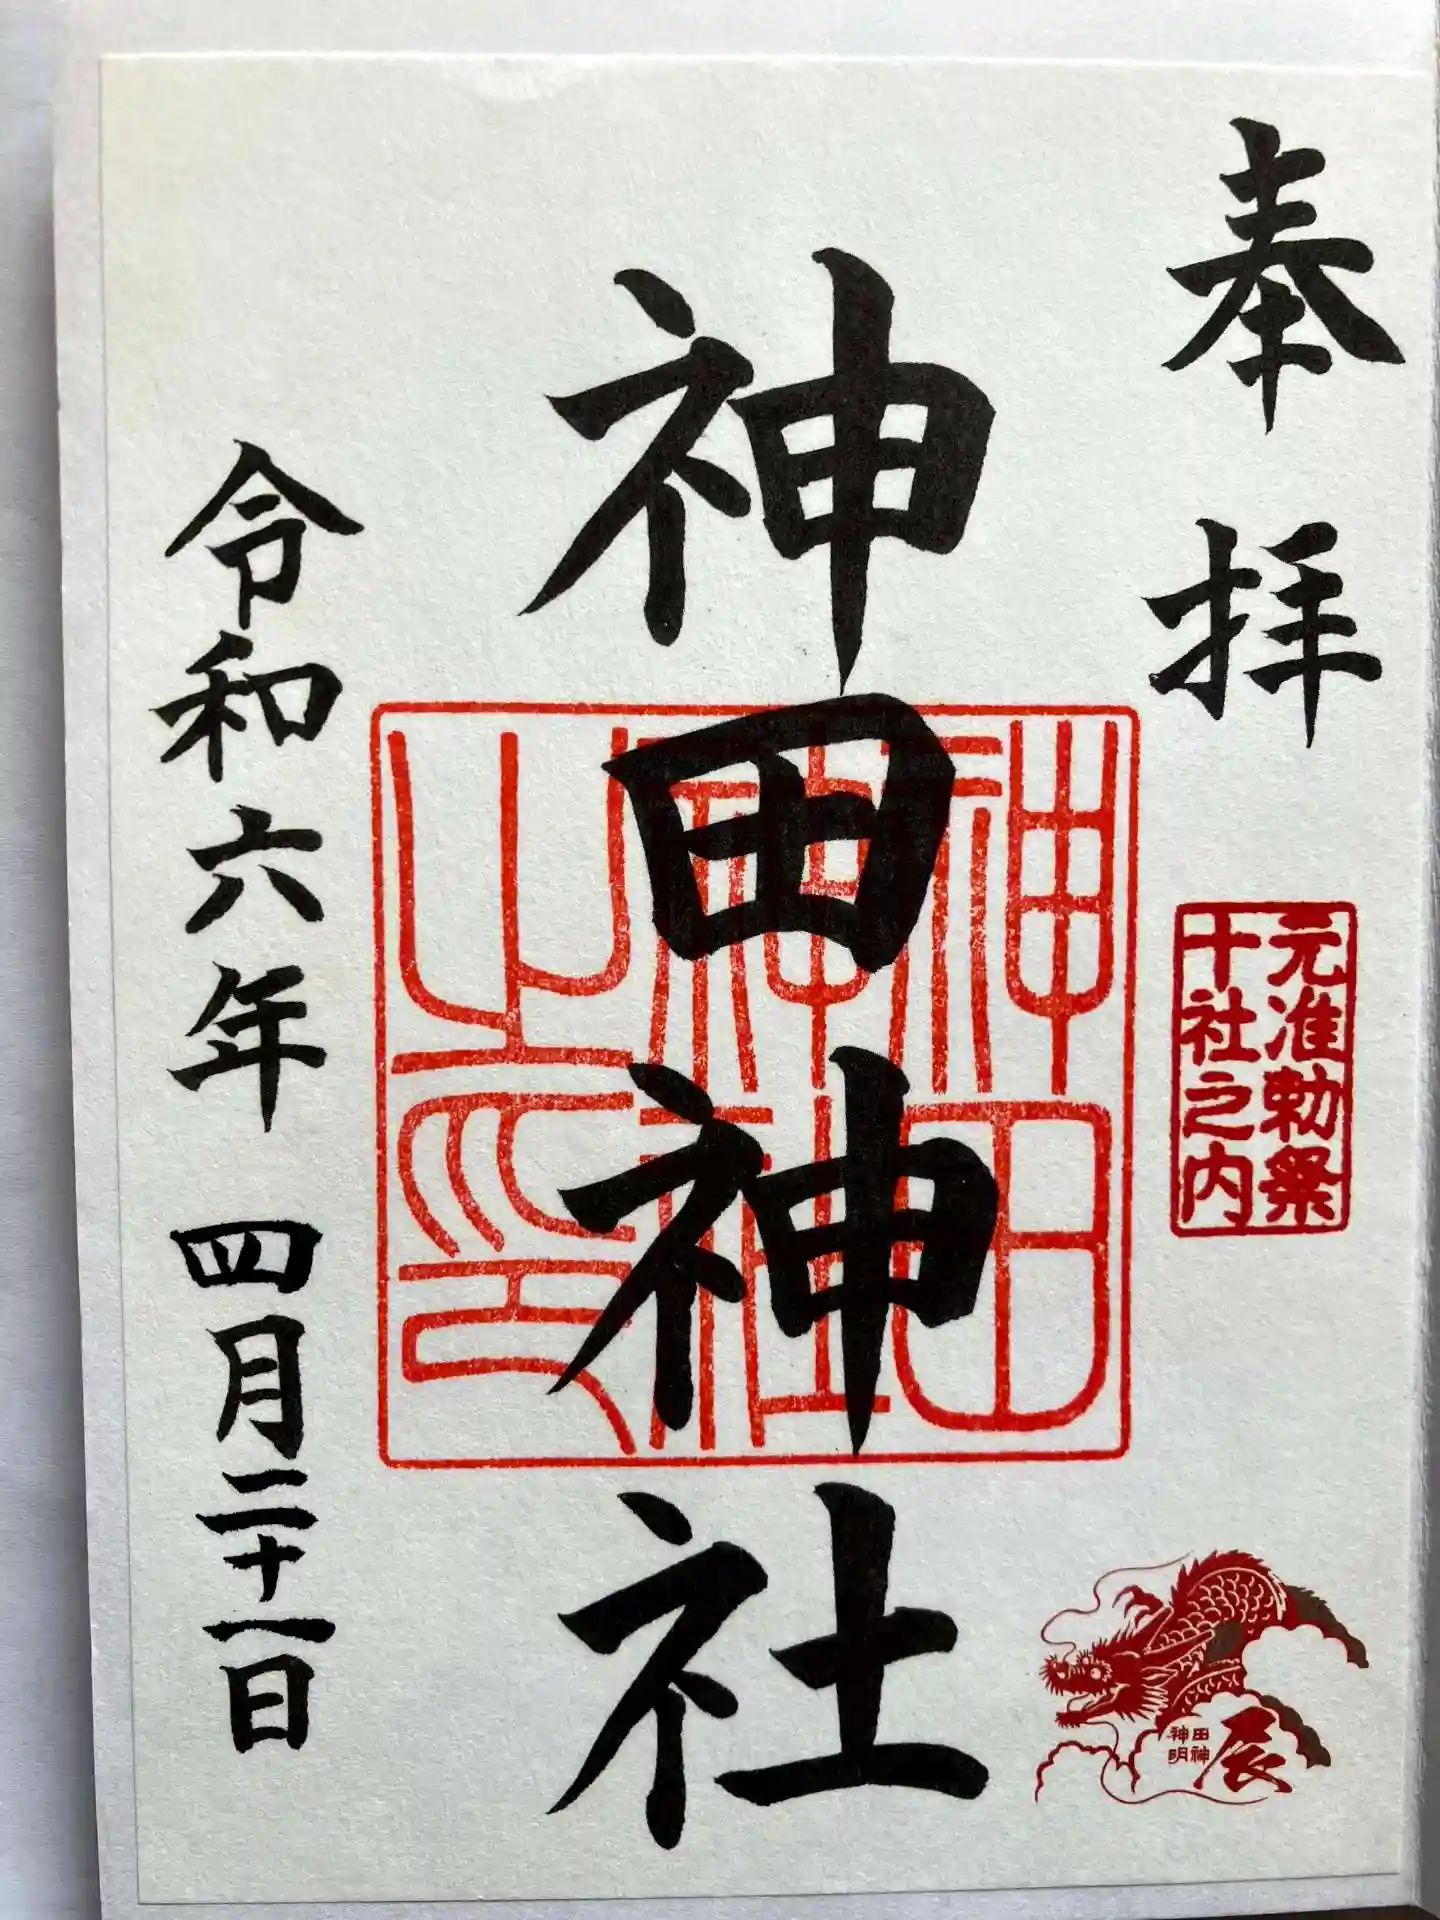 奉拝
元准勅祭
十社之内
神田神社
神田
神社
之印
令和六年 四月二十一日
辰
神田
明神